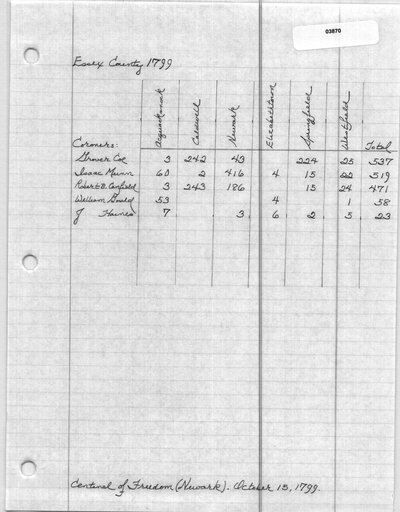 03870
Essex County 1799
Acquackanonk Caldwell Newark Elizabethtown Springfield Westfield
Coroners: Total
Grover Coe 3 242 43 224 25 537
Isaac Munn 60 2 416 4 15 22 519
Robert B. Canfield 3 243 186 15 24 471
William Gould 53 4 1 58
J Haines 7 3 6 2 5 23
Centinel of Freedom (Newark). October 15, 1799.